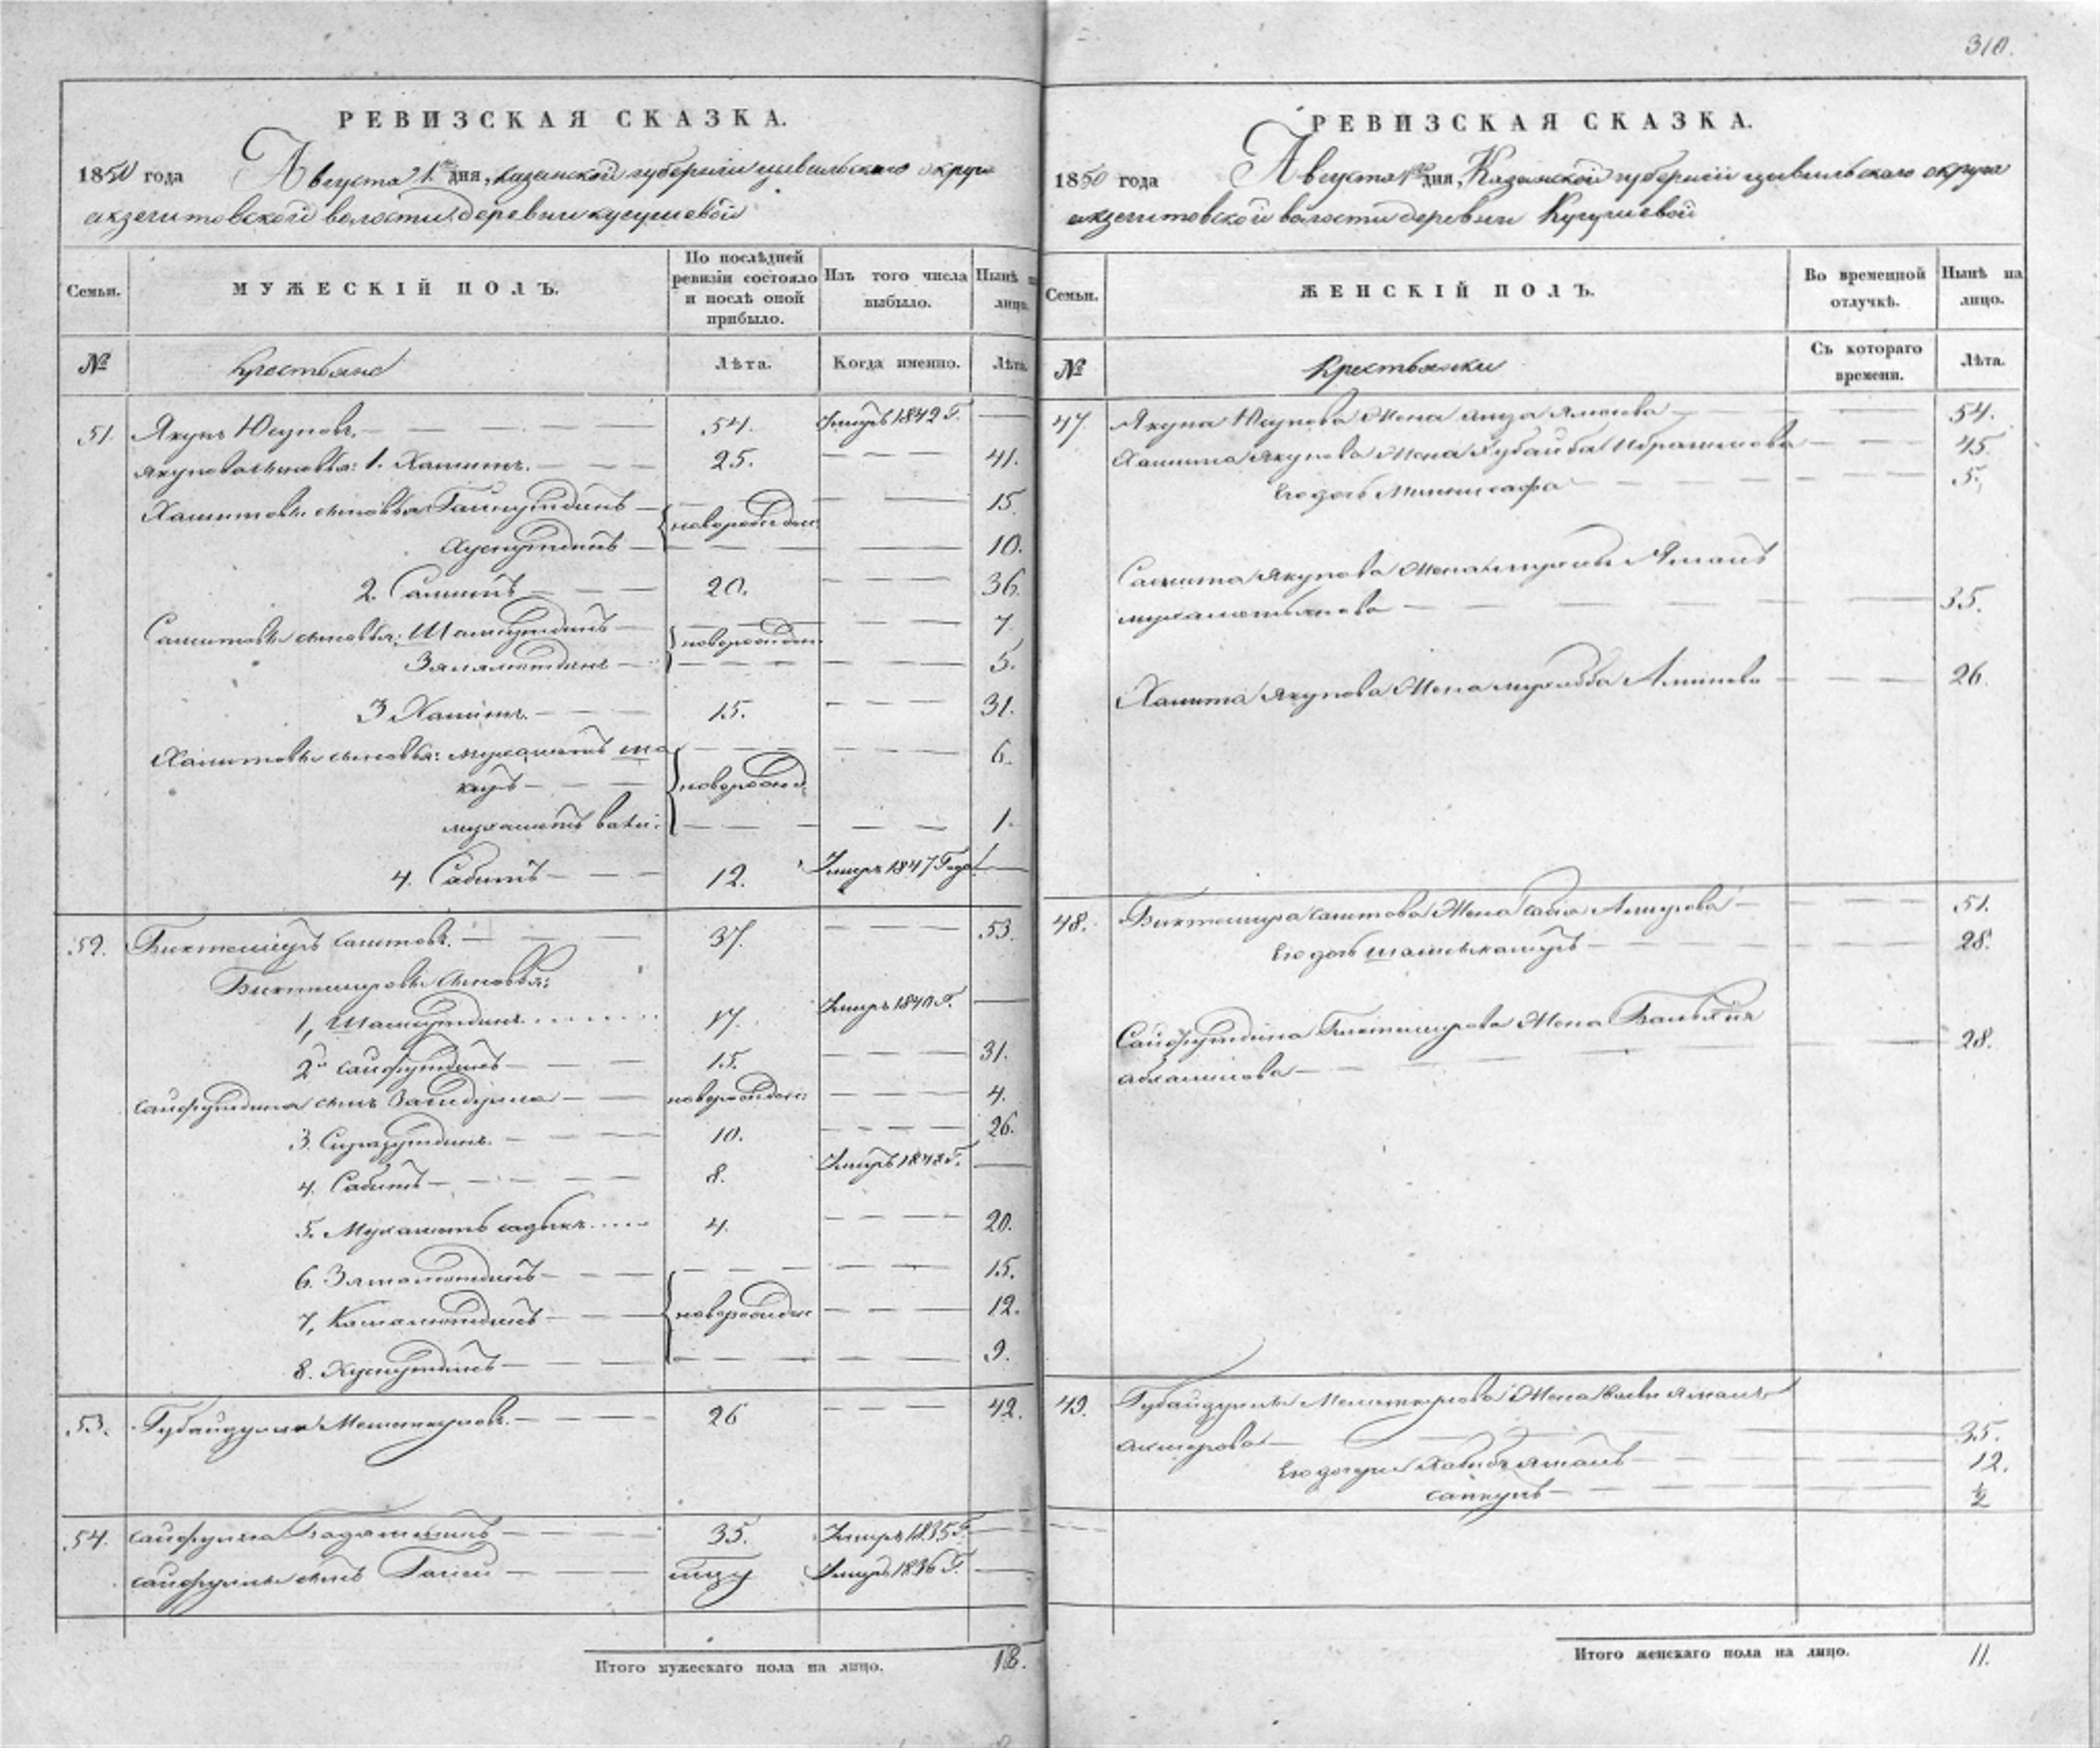 310.
РЕВИЗСКАЯ СКАЗКА.
1850 года Августа 1 дня, Казанской губернии цивильскаго округа
акзегитовской волости деревни кугушевой
Семьи. МУЖЕСКІЙ ПОЛЪ. По послѣдней ревизіи состояло и послѣ оной прибыло. Изъ того числа выбыло. Нынѣ на лицо.
№ Крестьяне Лѣта. Когда именно. Лѣта.
51. Якупъ Юсуповъ. 54. Умеръ 1842 Г.
Якупова сыновья: 1. Хамитъ. 25. 41.
Хамитовы сыновья: Гайнутдинъ 15
новорожден:
Хуснутдинъ 10.
2. Самитъ 20. 36.
Самитовы сыновья: Шамсутдинъ 7.
новорожден:
Залялютдинъ 5.
3 Хамитъ. 15. 31.
Хамитовы сыновья: мухаметъ ша 6.
киръ новорожд.
мухаметъ вали: 1.
4. Сабитъ 12. Умеръ 1847 Года
52. Биктемиръ саитовъ. 37. 53.
Биктемировы сыновья:
1, Шамсутдинъ 17. Умеръ 1840 Г.
2 сайфутдинъ 15. 31.
сайфутдина сынъ Загидулла новорожден: 4.
3 Сиразутдинъ. 10. 26.
4. Сабитъ 8. Умеръ 1842 Г.
5. Мухаметъ садыкъ 4. 20.
6. Зямалютдинъ 15.
7, Камалютдинъ новорожден 12.
8. Хуснутдинъ 9.
53. Губайдулла 26 42.
54. сайфулла 35. Умеръ 1835 Г.
сайфуллы сынъ Гали Умеръ 1836 Г.
Итого мужескаго пола на лицо. 18.
РЕВИЗСКАЯ СКАЗКА.
1850 года Августа 1 дня, Казанской губернии цивильскаго округа
акзегитовской волости деревни Кугушевой
Семьи. ЖЕНСКІЙ ПОЛЪ. Во временной отлучкѣ. Нынѣ на лицо.
№ Крестьянки Съ котораго времени. Лѣта.
47 Якупа Юсупова Жена 54.
Хамита Якупова Жена Хубайба Ибрагимова 45.
Его дочь Миннисафа 5.
Самита Якупова Жена
мухаметьянова 35.
Хамита Якупова Жена Аминева 26.
48. Биктемира саитова Жена 51.
Его дочь 28.
Сайфутдина Биктемирова Жена
28.
49. Губайдуллы Жена
35.
Его дочери 12.
½
Итого женскаго пола на лицо. 11.